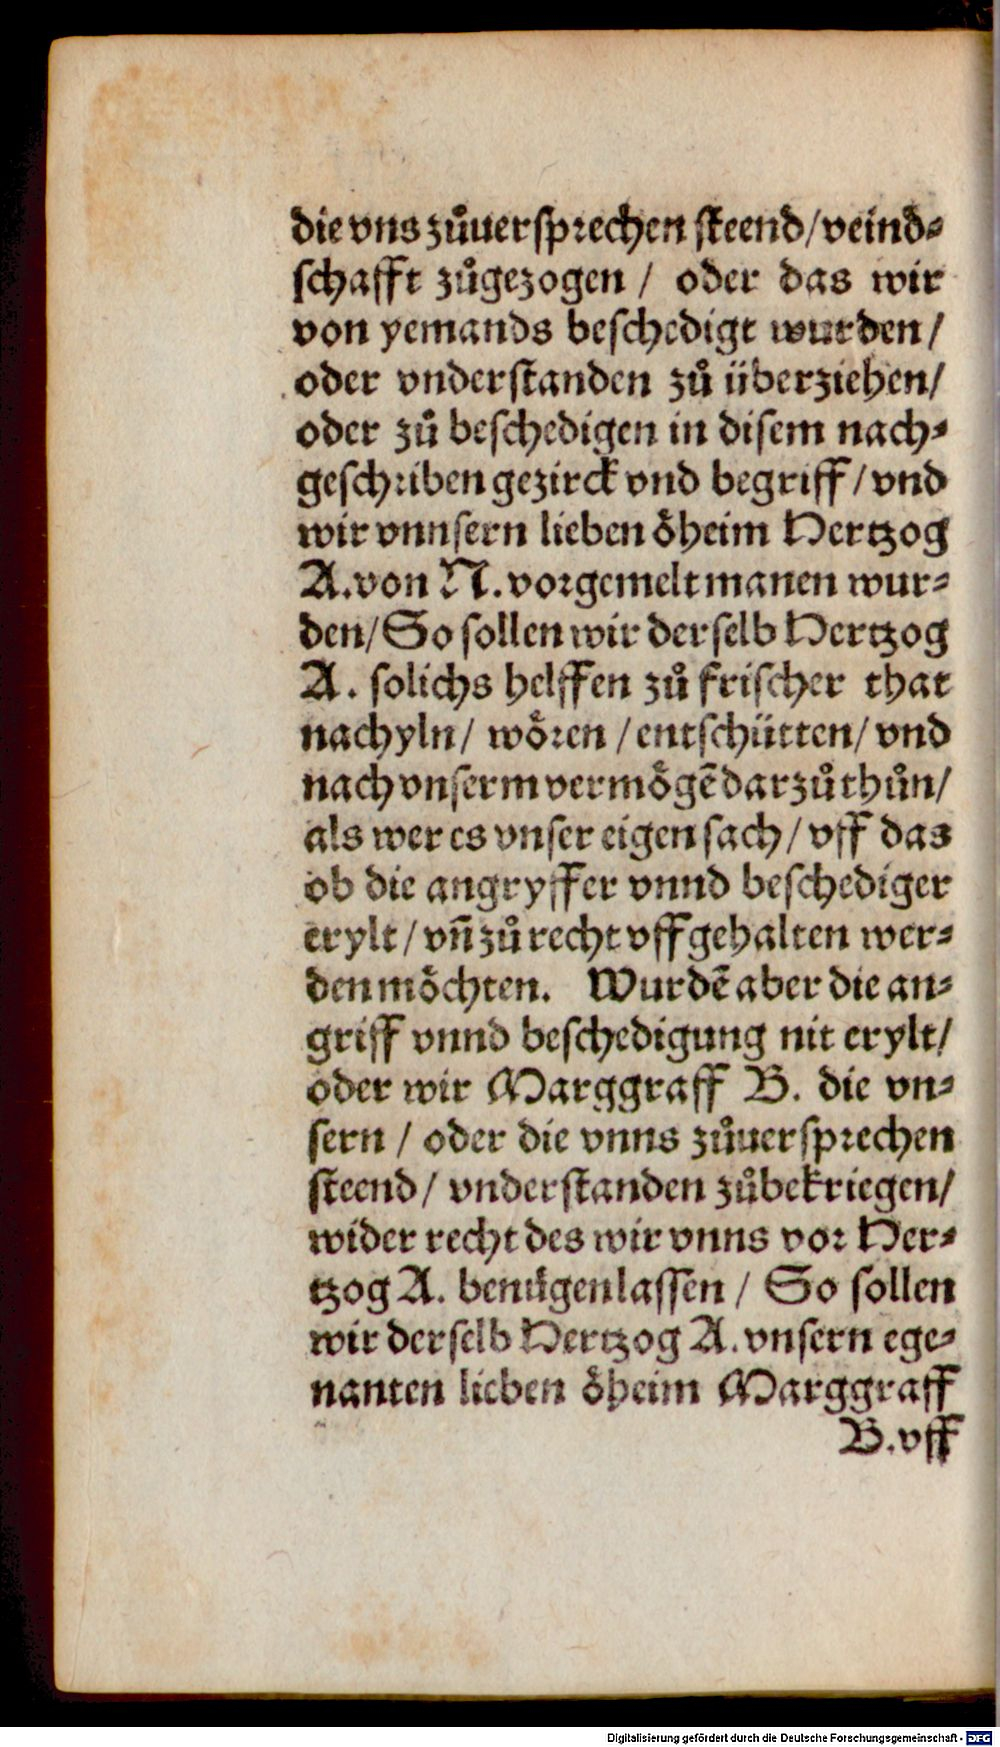 die vns zůuersprechen steend/veind⸗
schafft zůgezogen / oder das wir
von yemands beschedigt wurden/
oder vnderstanden zů überziehen/
oder zů beschedigen in disem nach⸗
geschriben gezirck vnd begriff/vnd
wir vnnsern lieben öheim Hertzog
A.von N.vorgemelt manen wur⸗
den/So sollen wir derselb Hertzog
A. solichs helffen zů frischer that
nachyln/ wören /entschütten/ vnd
nach vnserm vermögē darzů thůn/
als wer es vnser eigen sach/vff das
ob die angryffer vnnd beschediger
erylt/vñ zů recht vffgehalten wer⸗
den möchten. Wurdē aber die an⸗
griff vnnd beschedigung nit erylt/
oder wir Marggraff B. die vn⸗
sern / oder die vnns zůuersprechen
steend/ vnderstanden zůbekriegen/
wider recht des wir vnns vor Her⸗
tzog A. benügen lassen / So sollen
wir derselb Hertzog A.vnsern ege⸗
nanten lieben öheim Marggraff
B.vff
Digitalisierung gefördert durch die Deutsche Forschungsgemeinschaft - DFG